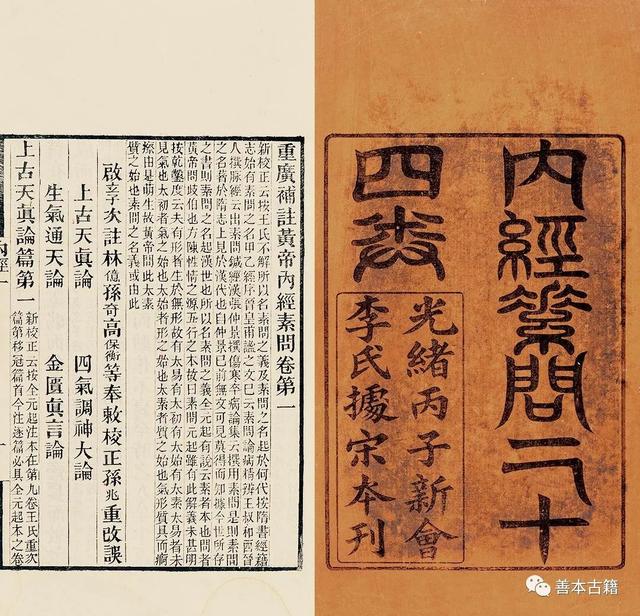 內經素問二十
四卷
光緒丙子新會
李氏據宋本刊
重廣補註黃帝內經素問卷第一
新校正云按王氏不解所以名素問之義及素問之名起於何代按隋書經籍
志始有素問之名甲乙經序晉皇甫謐之文已云素問論病精辨王叔和西晉
人撰脈經云出素問鍼經漢張仲景撰傷寒卒病論集云撰用素問是則素問
之名著於隋志上見於漢代也自仲景已前無文可見莫得而知據今世所存
之書則素問之名起漢世也所以名素問之義全元起有說云素者本也問者
黃帝問歧伯也方陳性情之源五行之本故曰素問元起雖有此解義未甚明
按乾鑿度云夫有形者生於無形故有太易有太初有太始有太素太易者未
見氣也太初者氣之始也太始者形之始也太素者質之始也氣形質具而痾
瘵由是萌生故黃帝問此太素
質之始也素問之名義或由此
啟玄子次註林億孫奇高保衡等奉敕校正孫兆重改誤
上古天眞論 四氣調神大論
生氣通天論 金匱眞言論
上古天眞論篇第一
新校正云按全元起注本在第九卷王氏重次
篇第移冠篇首今注逐篇必具全元起本之卷
內經一
善本古籍